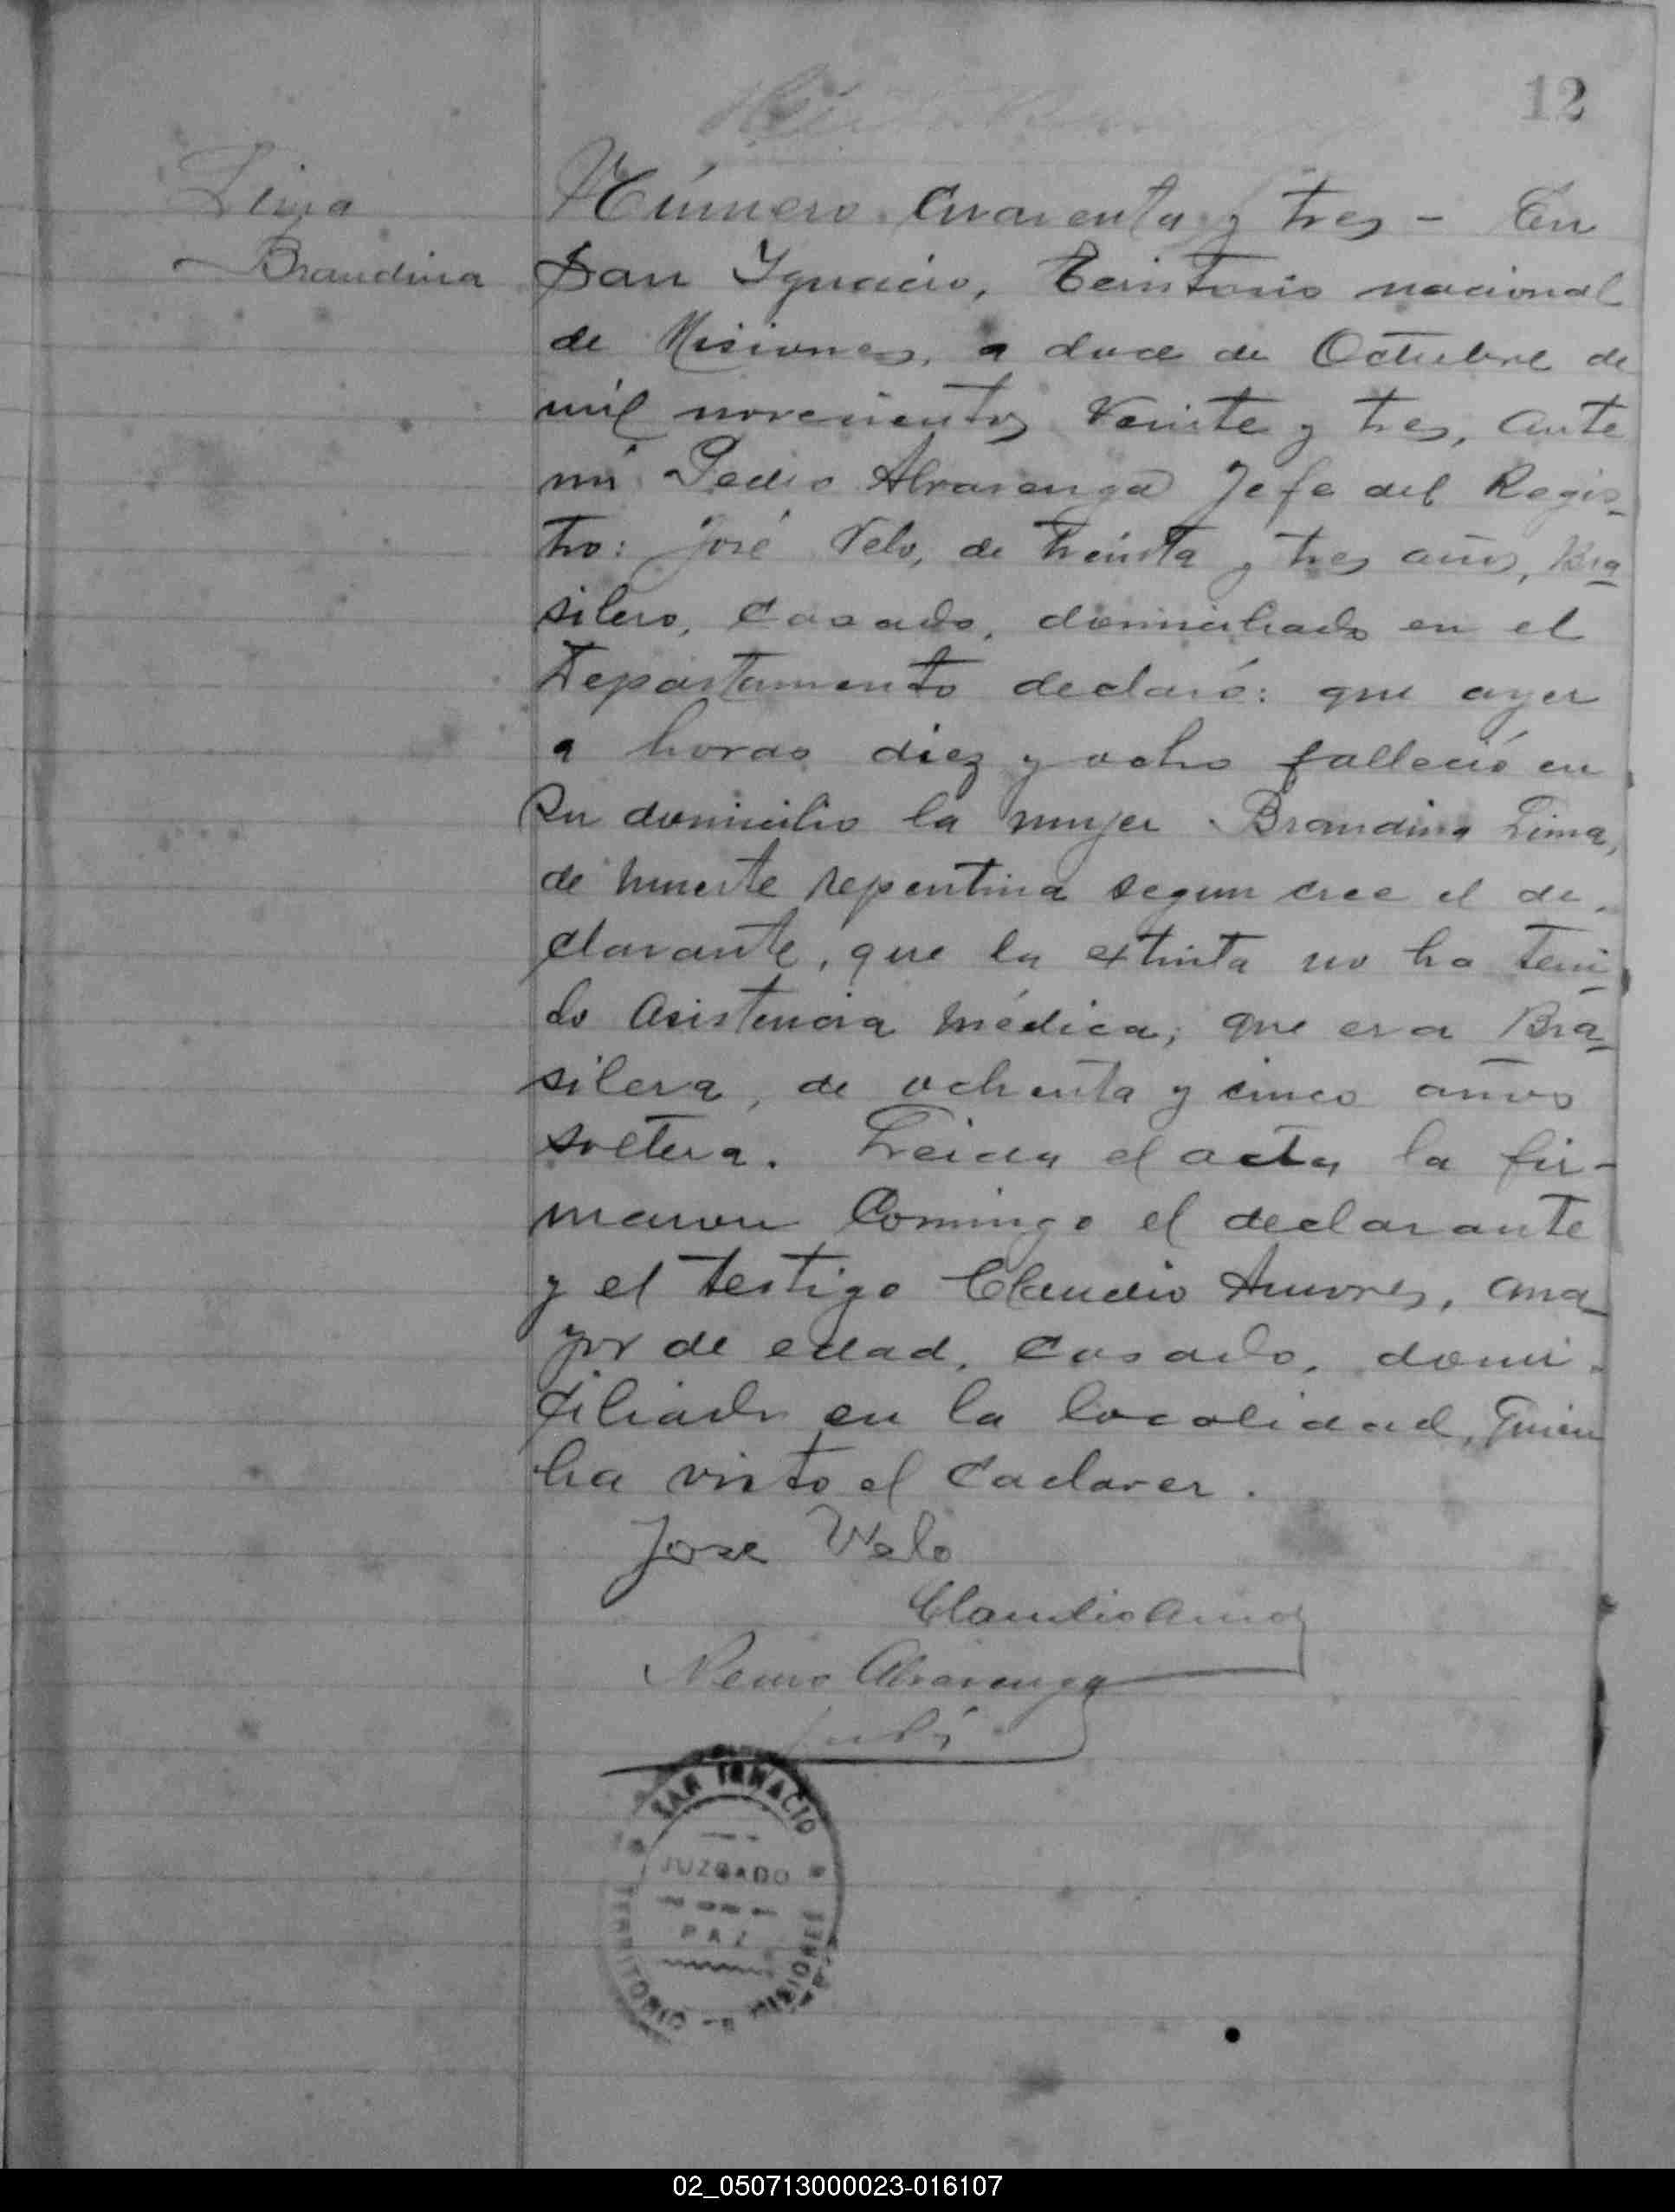 12
Lima
Brandina
Número Cuarenta y tres - En
San Ignacio, Territorio nacional
de Misiones, a doce de Octubre de
mil novecientos Veinte y tres, ante
mi Pedro Alvarenga Jefe del Regis-
tro: José Velo, de treinta y tres años, Bra-
silero, Casado, domiciliado en el
Departamento declaró: que ayer
a horas diez y ocho falleció en
Su domicilio la mujer Brandina Lima,
de muerte repentina segun cree el de-
clarante, que la extinta no ha teni-
do asistencia médica; que era Bra-
silera, de ochenta y cinco años
soltera. Leida el acta la fir-
maron Conmigo el declarante
y el testigo Claudio ma-
yor de edad, Casado, domi-
ciliado en la localidad, Quien
ha visto el Cadaver.
Jose Velo
Claudio
Alvarenga
SAN IGNACIO
JUZGADO
PAZ
TERRITORIO MISIONES
02_050713000023-016107